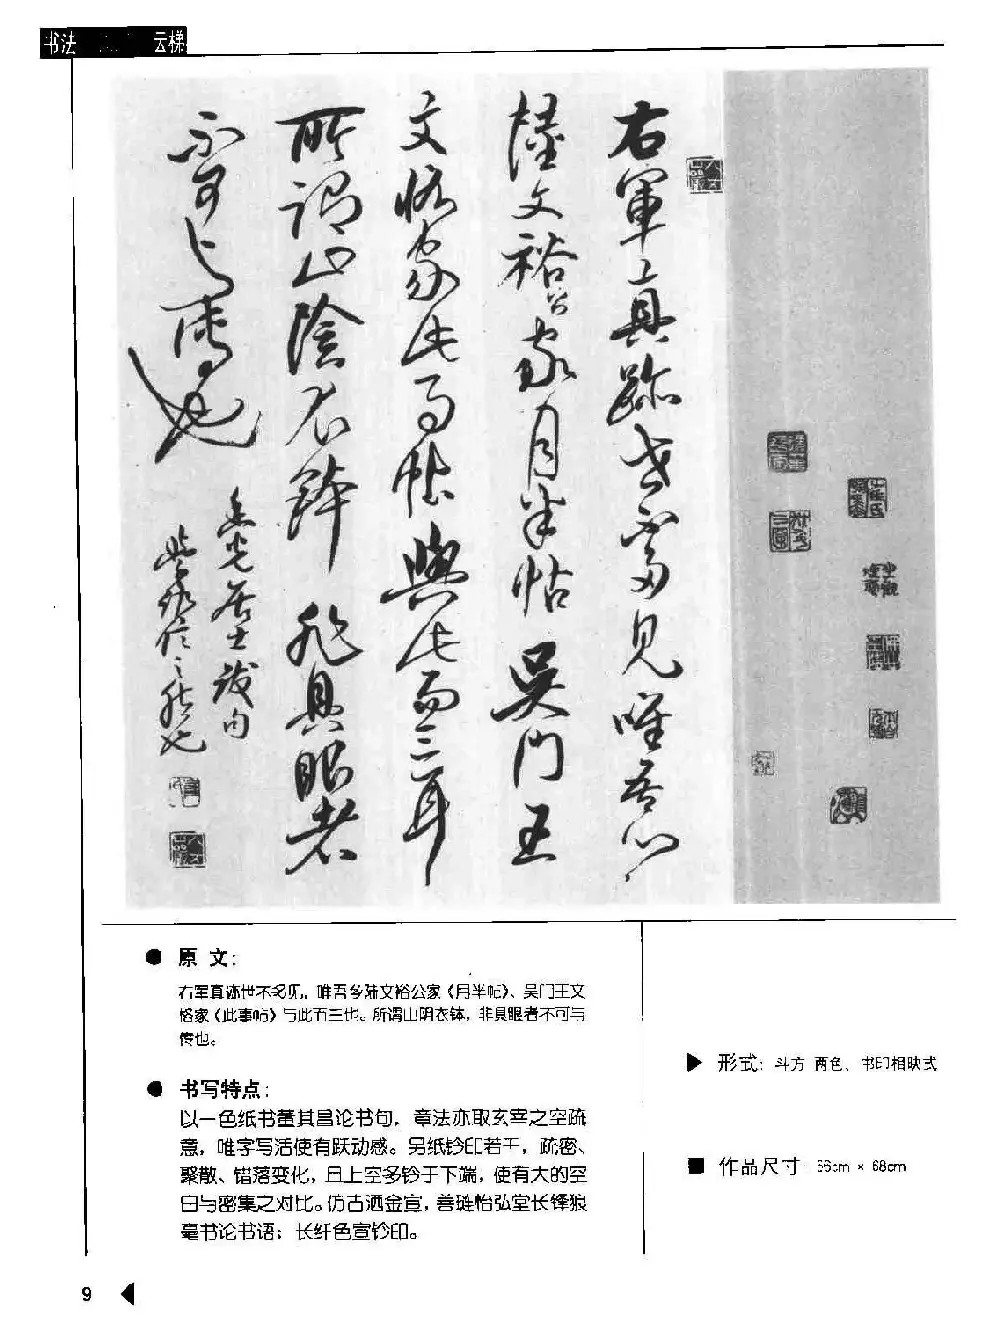 书法 云梯
右軍真跡世不多見唯吾鄉
陸文裕公家月半帖吳門王
文恪家此事帖與此而三耳
所謂山陰衣鉢非具眼者
不可與傳也
原文：
右军真迹世不多见，唯吾乡陆文裕公家《月半帖》、吴门王文
恪家《此事帖》与此而三也。所谓山阴衣钵，非具眼者不可与
传也。
书写特点：
以一色纸书董其昌论书句，章法亦取玄宰之空疏
意，唯字写活使有跃动感。另纸钤印若干，疏密、
聚散、错落变化，且上空多钤于下端，使有大的空
白与密集之对比。仿古洒金宣，善琏怡弘堂长锋狼
毫书论书语；长纤色宣钤印。
形式：斗方 两色、书印相映式
作品尺寸 66cm × 68cm
9